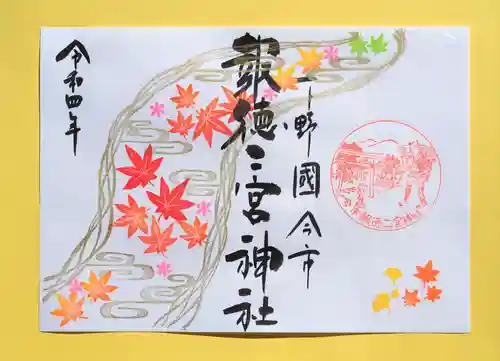 下野國今市
報徳二宮神社
令和四年